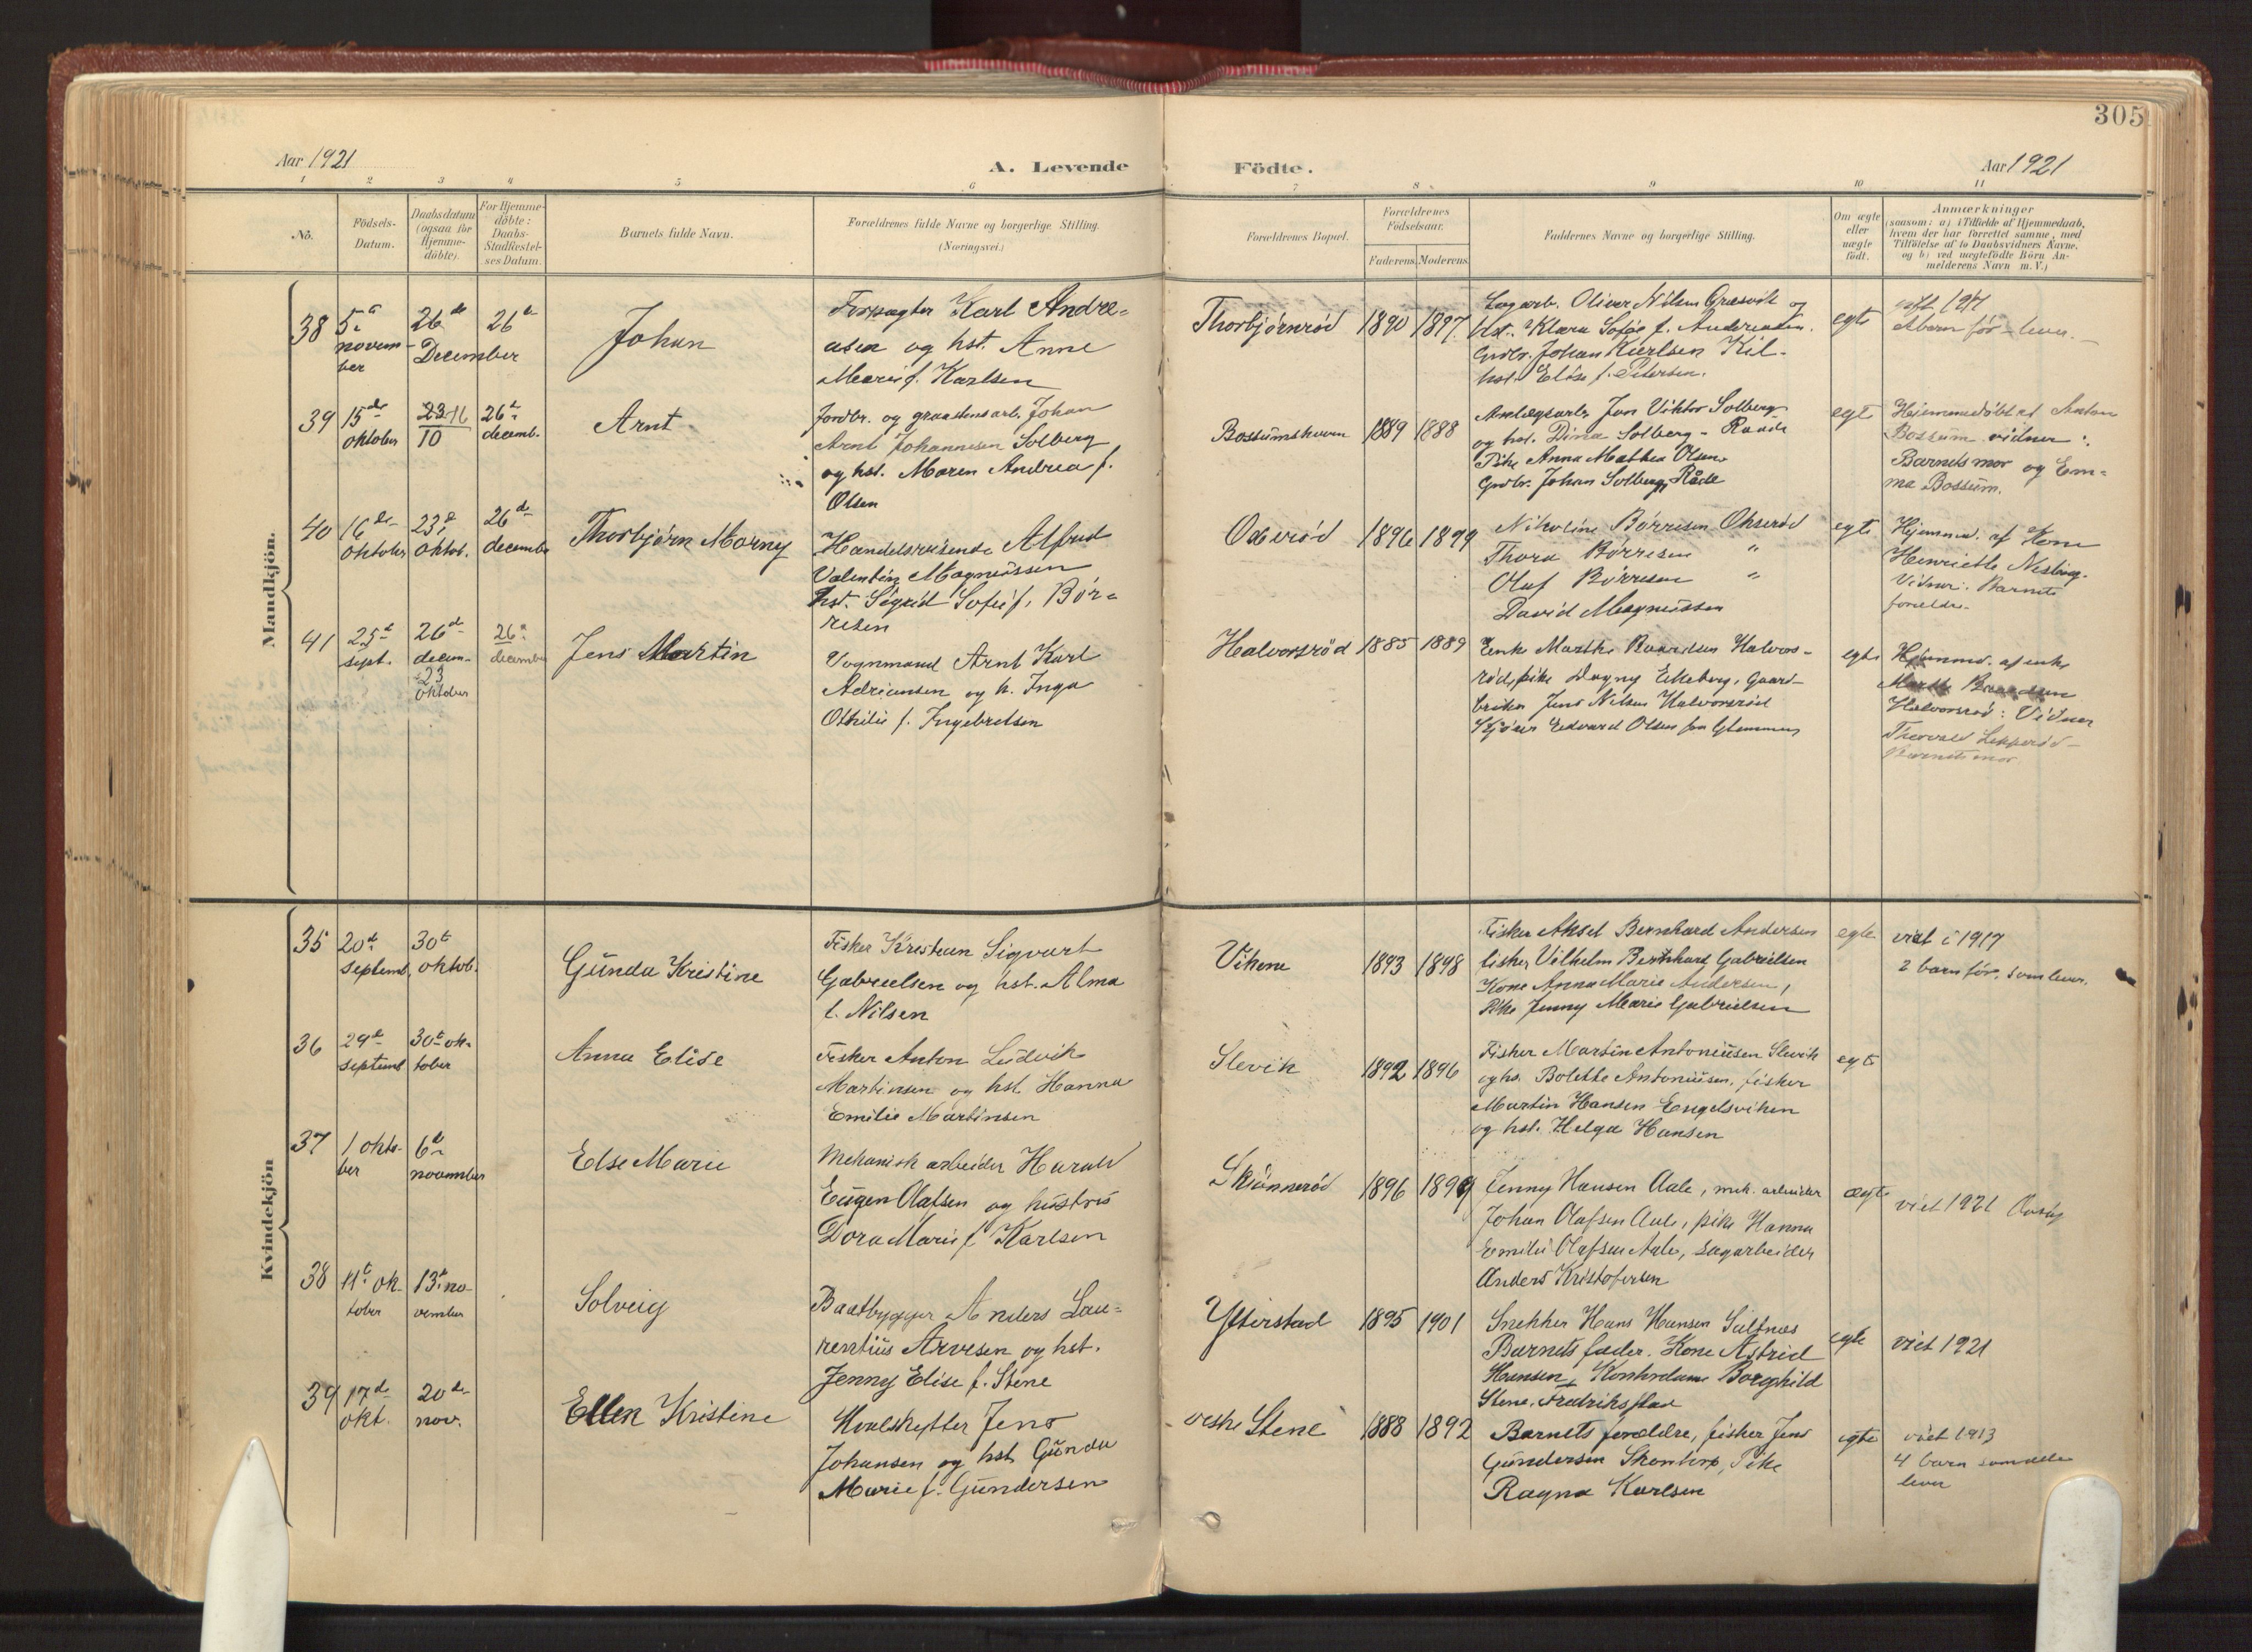 305
Aar 1921
A. Levende
Födte.
Aar 1921
1 2 3 4 5 6 7 8 9 10 11
No.
Födsels-
Datum.
Daabsdatum
(ogsaa for
Hjemme-
döbte).
For Hjemme-
döbte:
Daabs-
Stadfæstel-
ses Datum.
Barnets fulde Navn.
Forældrenes fulde Navne og borgerlige Stilling.
(Næringsvei.)
Forældrenes Bopæl.
Forældrenes
Födselsaar.
Faderens. Moderens.
Faddernes Navne og borgerlige Stilling.
Om ægte
eller
uægte
födt.
Anmærkninger
(saasom: a) i Tilfælde af Hjemmedaab,
hvem der har forrettet samme, med
Tilföielse af to Daabsvidners Navne,
og b) ved uægtefödte Börn An-
melderens Navn m. V.)
Mandkjön.
38
5te
novem-
ber
26de
December
26de
Johan
Karl Andre-
asen og hst. Anne
Marie f. Karlsen
Thorbjørnrød
1890
1897
Oliver Nilsen Græsvik og
hst. Klara Sofie f. Andreasen.
Grdbr. Johan Karlsen Kil-
hst. Elise f. Petersen.
egte
39
15de
oktober
23-16
10
26de
decemb.
Arnt
Jordbr. og graastensarb. Johan
Arnt Johannesen Solberg
og hst. Maren Andrea f.
Olsen
Bossumshaven
1889
1888
Anlægsarb. Jon Viktor Solberg
og hst. Dina Solberg - Raade
Pike Anna Mathea Olsen
Grdbr. Johan Solberg, Råde
egte
Hjemmedöbt af Anton
Bossum vidner:
Barnets mor og Em-
ma Bossum.
40
16de
oktober
23de
oktob.
26de
december
Thorbjørn Morny
Handelsreisende Alfred
Valentin Magnussen
hst. Sigrid Sofie f. Bör-
resen
Oxerød
1896
1899
Nikoline Börresen Okserød
Thora Börresen "
Olaf Börresen "
David Magnussen
egte
Hjemmed. af Kone
Henriette
Vidner: Barnets
forældre.
41
25de
sept.
26de
decem-
23
oktober
26de
december
Jens Martin
Vognmand Arnt Karl
Adriansen og h. Inga
Othilie f. Ingebretsen
Halvorsrød
1885
1889
Enke Marthe Halvors-
rød, pike Dagny Ekeberg, Gaard-
bruker Jens Nilsen Halvorsrød
Edvard Olsen fra Glemminge
egte
Hjemmed. af enke
Marthe
Halvorsrød: Vidner
Barnets mor
Kvindekjön
35
20de
septemb.
30te
oktob.
Gunda Kristine
Fisker Kristian Sigvart
Gabrielsen og hst. Alma
f. Nilsen
Vikene
1893
1898
Fisker Aksel Bernhard Andersen
fisker Vilhelm Bernhard Gabrielsen
Kone Anna Marie Andersen,
Pike Jenny Marie Gabrielsen
egte
viet i 1917
2 barn før, som lever.
36
29de
septemb
30te ok-
tober
Anna Elise
Fisker Anton Ludvik
Martinsen og hst. Hanna
Emilie Martinsen
Slevik
1892
1896
Fisker Martin Antoniusen Slevik
og hs. Bolette Antoniusen, fisker
Martin Hansen Engelsviken
og hst. Helga Hansen
egte
37
1 okto-
ber
6te
november
Else Marie
Mekanisk arbeider Harald
Eugen Olafsen og hustru
Dora Marie f. Karlsen
Skiønnerød
1896
1899
Jenny Hansen Aale, mek. arbeider
Johan Olafsen Aale, pike Hanna
Emilie Olafsen Aale, sagarbeider
Anders Kristofersen
ægte
viet 1921 Onsøy
38
11te ok-
tober
13de no-
vember
Solveig
Baatbygger Anders Lau-
rentius Arvesen og hst.
Jenny Elise f. Stene
Ytterstad
1895
1901
Snekker Hans Hansen Saltnes
Barnets fader. Kone Astrid
Hansen, Kontordame Borghild
Stene, Fredriksstad
egte
viet 1921
39
17de
okt.
20de
nov.
Ellen Kristine
Hvalskytter Jens
Johansen og hst. Gunda
Marie f. Gundersen
vestre Stene
1888
1892
Barnets forældre, fisker Jens
Gundersen Skontorp, Pike
Ragna Karlsen
egte
viet 1913
4 barn som alle
lever